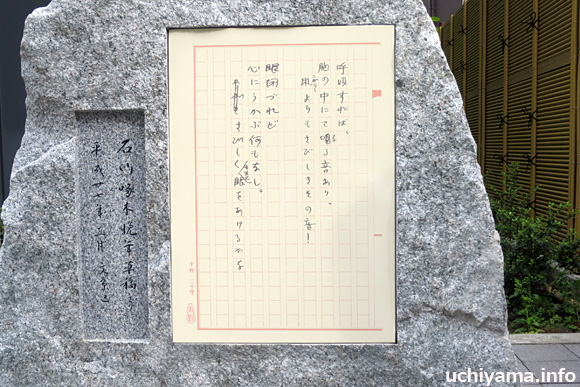 呼吸すれば、
胸の中にて鳴る音あり。
凩よりもさびしきその音!
眼閉づれど
心にうかぶ何もなし。
さびしくもまた眼をあけるかな
石川啄木
平成廿
uchiyama.info